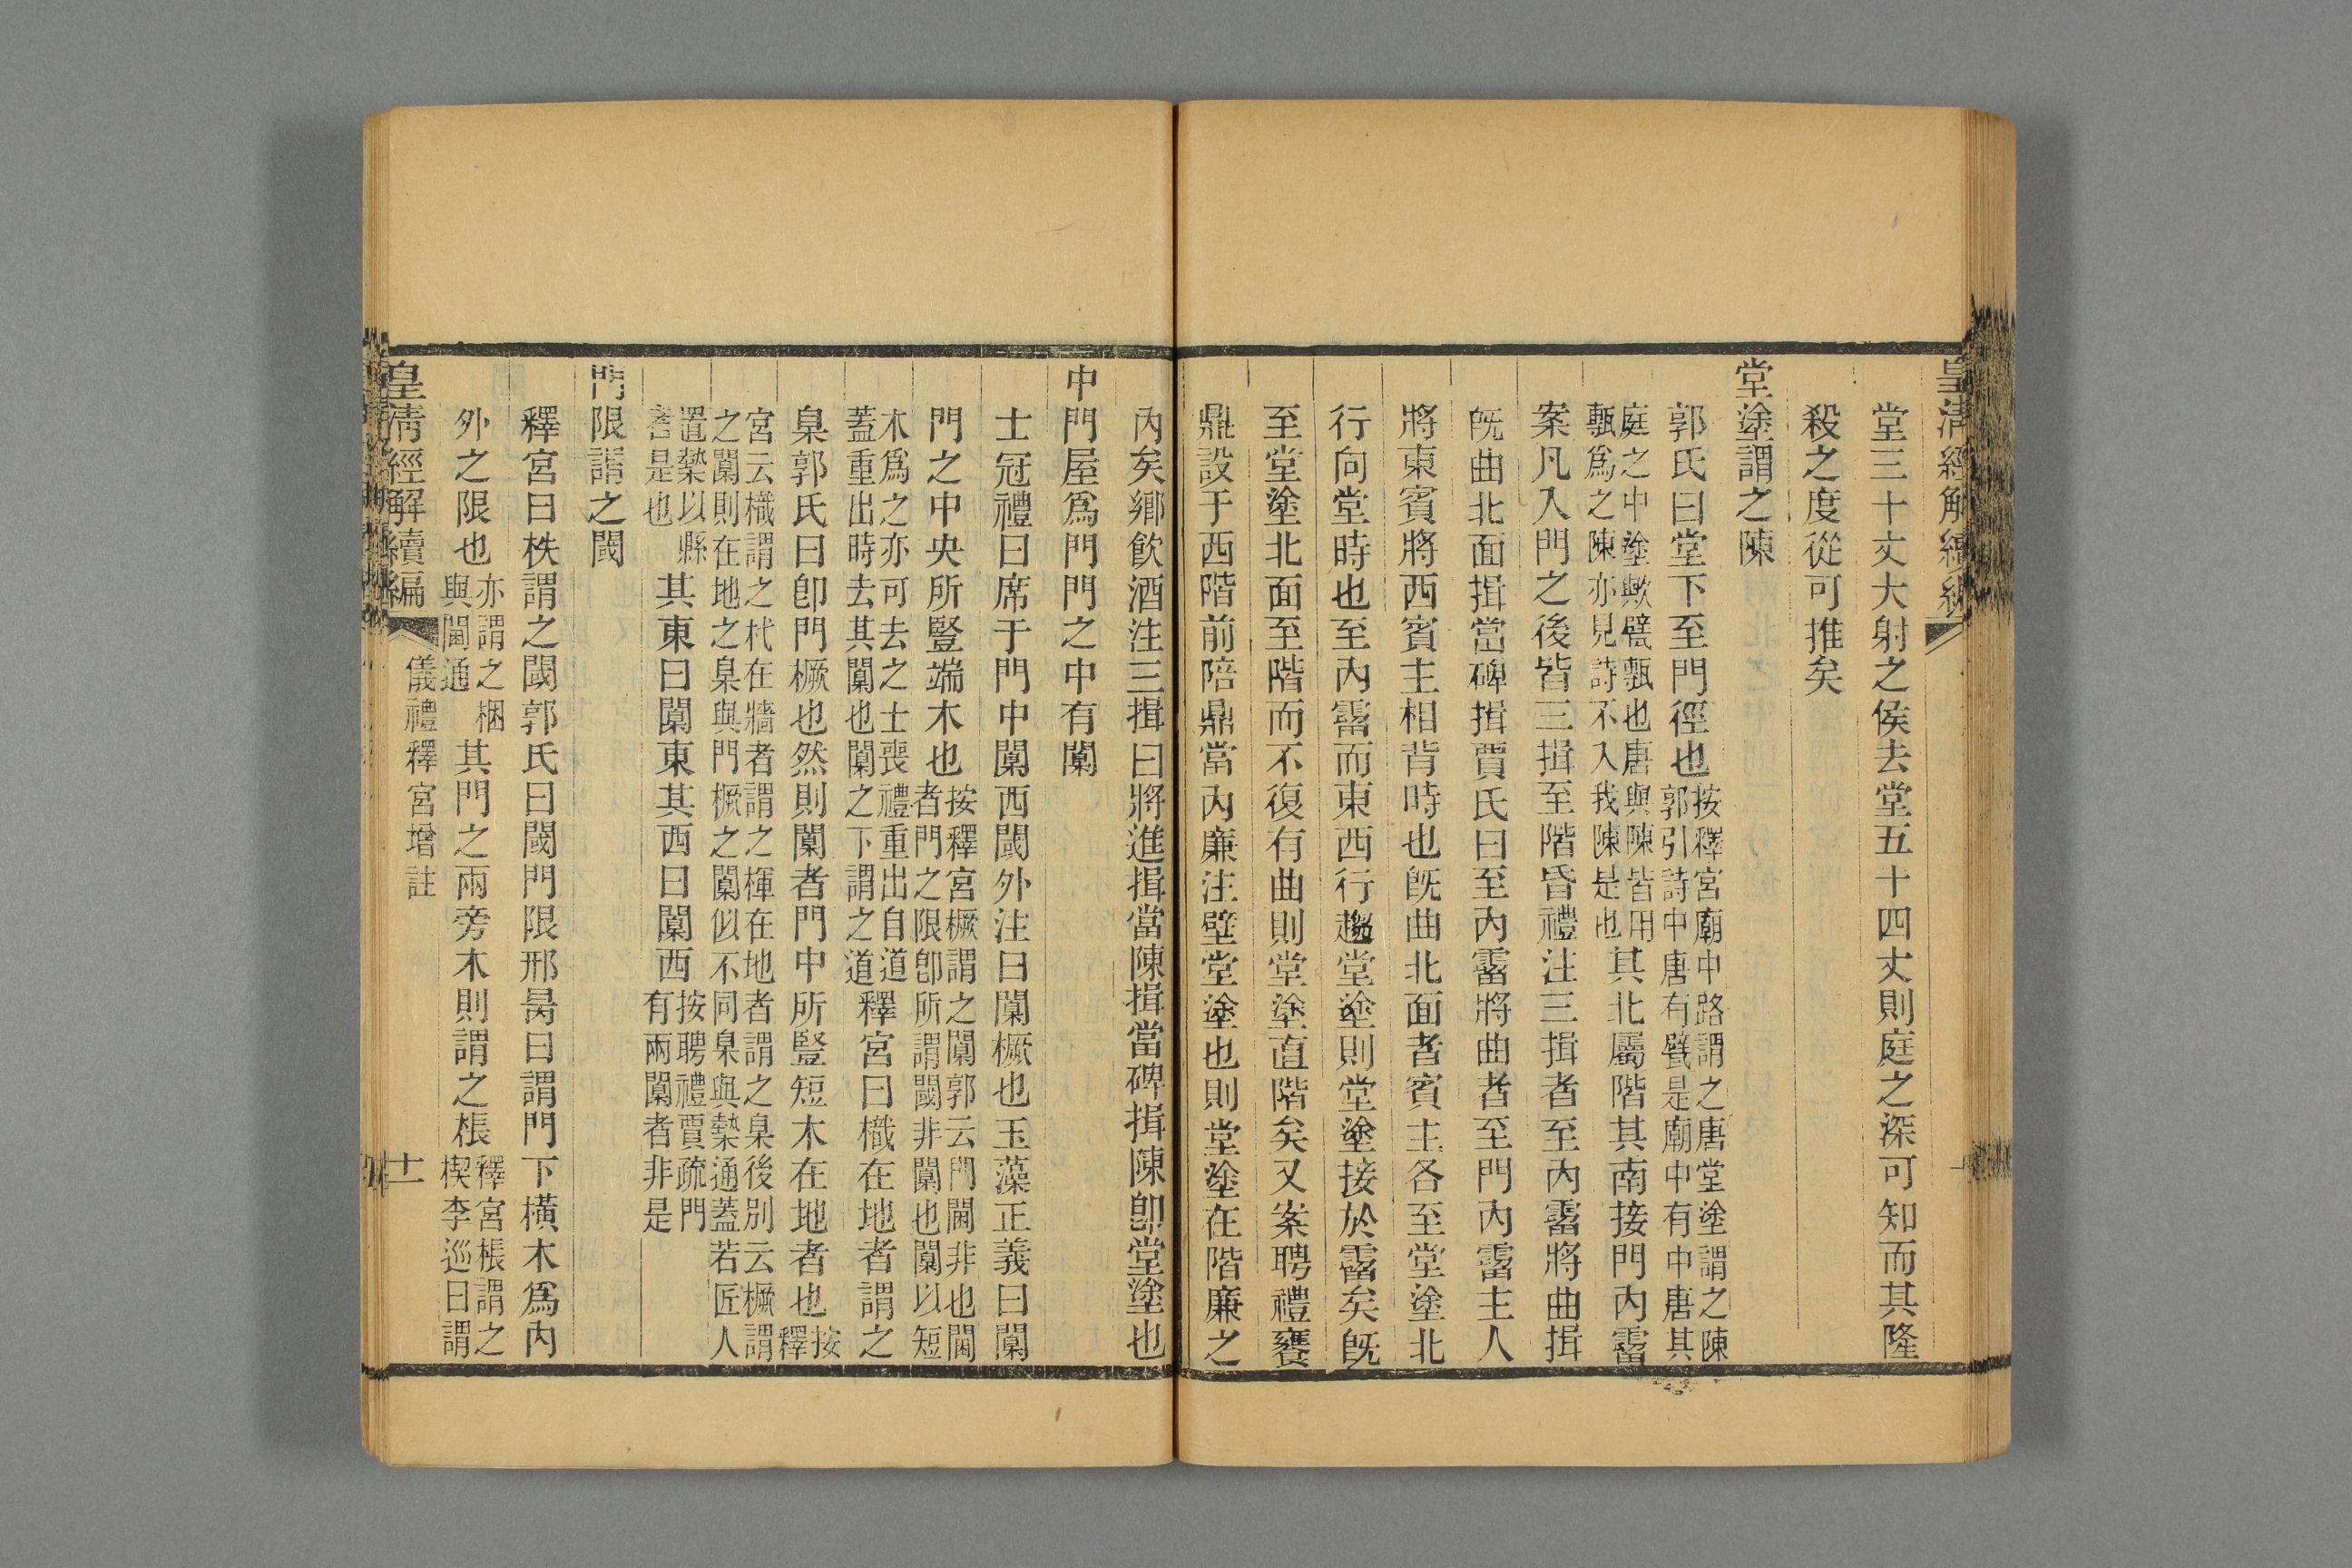 皇清經解續編
堂三十丈大射之侯去堂五十四丈則庭之深可知而其隆
殺之度從可推矣
堂塗謂之陳
郭氏曰堂下至門徑也
按釋宮廟中路謂之唐堂塗謂之陳
郭引詩中唐有甓是廟中有中唐其
庭之中塗歟甓甎也唐與陳皆用
甎爲之陳亦見詩不入我陳是也
其北屬階其南接門內霤
案凡入門之後皆三揖至階昏禮注三揖者至內霤將曲揖
旣曲北面揖當碑揖賈氏曰至內霤將曲者至門內霤主人
將東賓將西賓主相背時也旣曲北面者賓主各至堂塗北
行向堂時也至內霤而東西行趨堂塗則堂塗接於霤矣旣
至堂塗北面至階而不復有曲則堂塗直階矣又案聘禮饔
鼎設于西階前陪鼎當內廉注壁堂塗也則堂塗在階廉之
內矣鄉飲酒注三揖曰將進揖當陳揖當碑揖陳卽堂塗也
中門屋爲門門之中有闑
士冠禮曰席于門中闑西閾外注曰闑橛也玉藻正義曰闑
門之中央所豎端木也
按釋宮橛謂之闑郭云門閫非也閫
者門之限卽所謂閾非闑也闑以短
木爲之亦可去之士喪禮重出自道
蓋重出時去其闑也闑之下謂之道
釋宮曰樴在地者謂之
臬郭氏曰卽門橛也然則闑者門中所豎短木在地者也
按
釋
宮云樴謂之杙在牆者謂之楎在地者謂之臬後別云橛謂
之闑則在地之臬與門橛之闑似不同臬與槷通蓋若匠人
置槷以縣
者是也
其東曰闑東其西曰闑西
按聘禮賈疏門
有兩闑者非是
門限謂之閾
釋宮曰柣謂之閾郭氏曰閾門限邢昺曰謂門下橫木爲內
外之限也
亦謂之梱
與閫通
其門之兩旁木則謂之棖
釋宮棖謂之
楔李巡曰謂
皇清經解續編
儀禮釋宮增註
十一